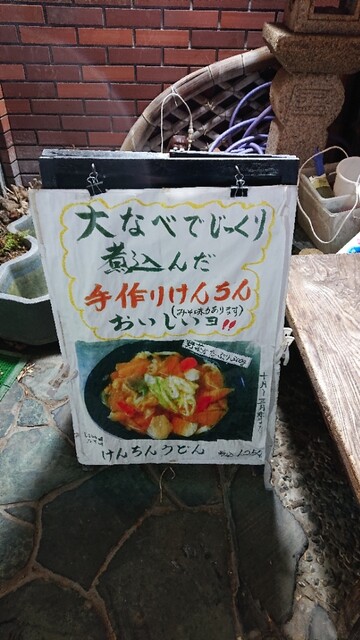 大なべでじっくり
煮込んだ
手作りけんちん
(みそ味もあります)
おいしいヨ!!
野菜たっぷり
けんちんうどん